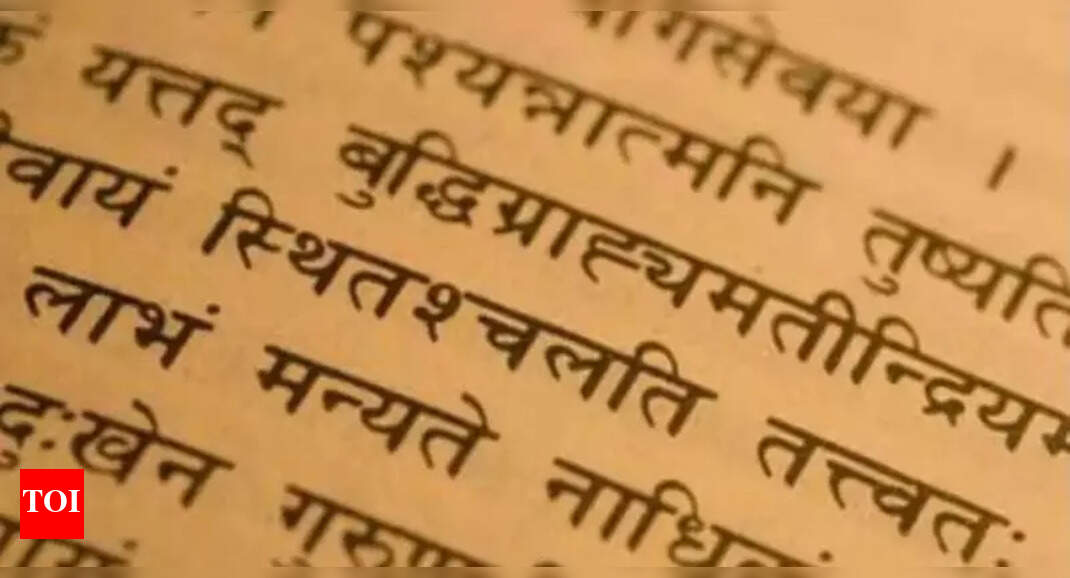 पश्यन्नात्मनि तुष्यति
यत्तद् बुद्धिग्राह्यमतीन्द्रियम
वायं स्थितश्चलति तत्त्वतः
लाभं मन्यते नाधिकं
दुःखेन
TOI